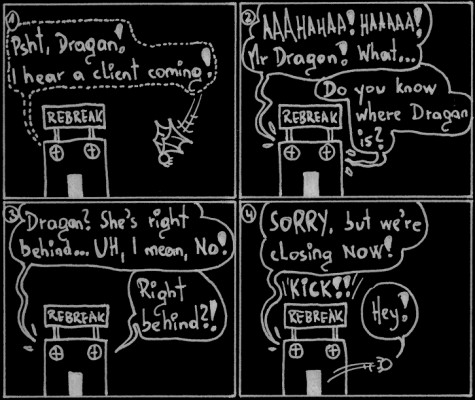 1
Psht, Dragan!
I hear a client coming!
REBREAK
2
AAAHAHAA! HAAAAA!
Mr Dragon! What...
Do you know
where Dragan
is?
REBREAK
3
Dragan? She's right
behind... UH, I mean, No!
Right
behind?!
REBREAK
4
SORRY, but we're
closing NOW!
KICK!!
REBREAK
Hey!